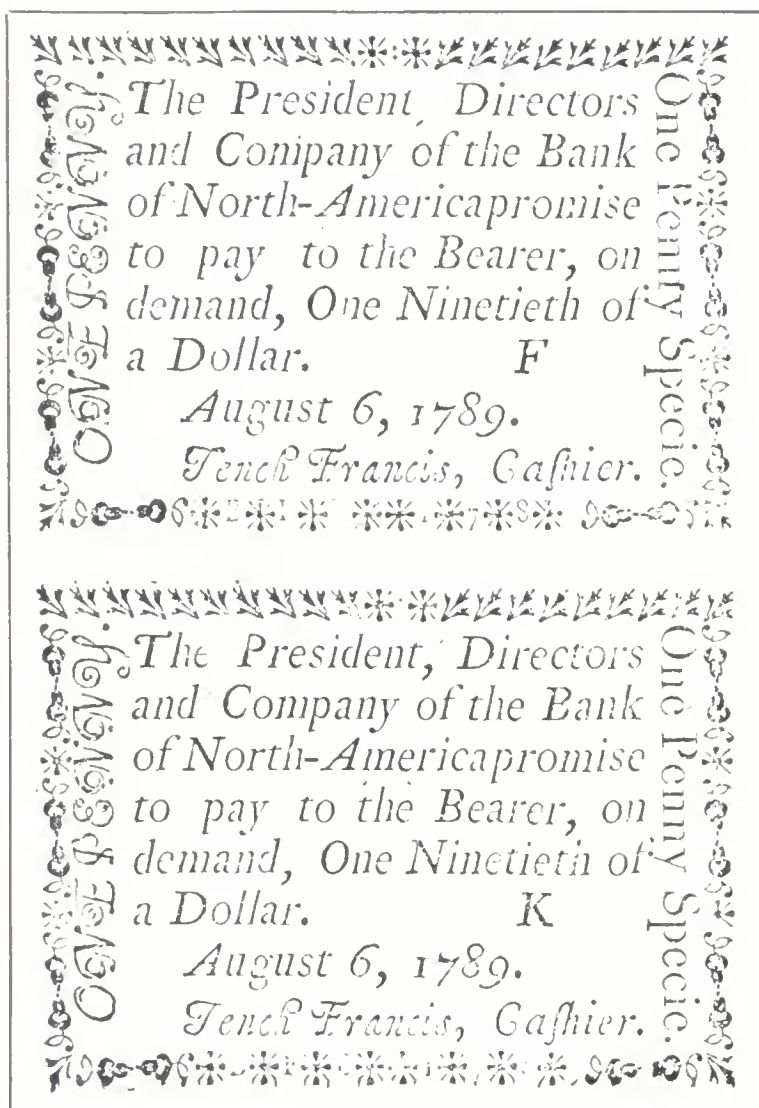 ONE PENNY.
The President, Directors
and Company of the Bank
of North-America promise
to pay to the Bearer, on
demand, One Ninetieth of
a Dollar. F
August 6, 1789.
Tench Francis, Caſhier.
One Penny Specie.
ONE PENNY.
The President, Directors
and Company of the Bank
of North-America promise
to pay to the Bearer, on
demand, One Ninetieth of
a Dollar. K
August 6, 1789.
Tench Francis, Caſhier.
One Penny Specie.